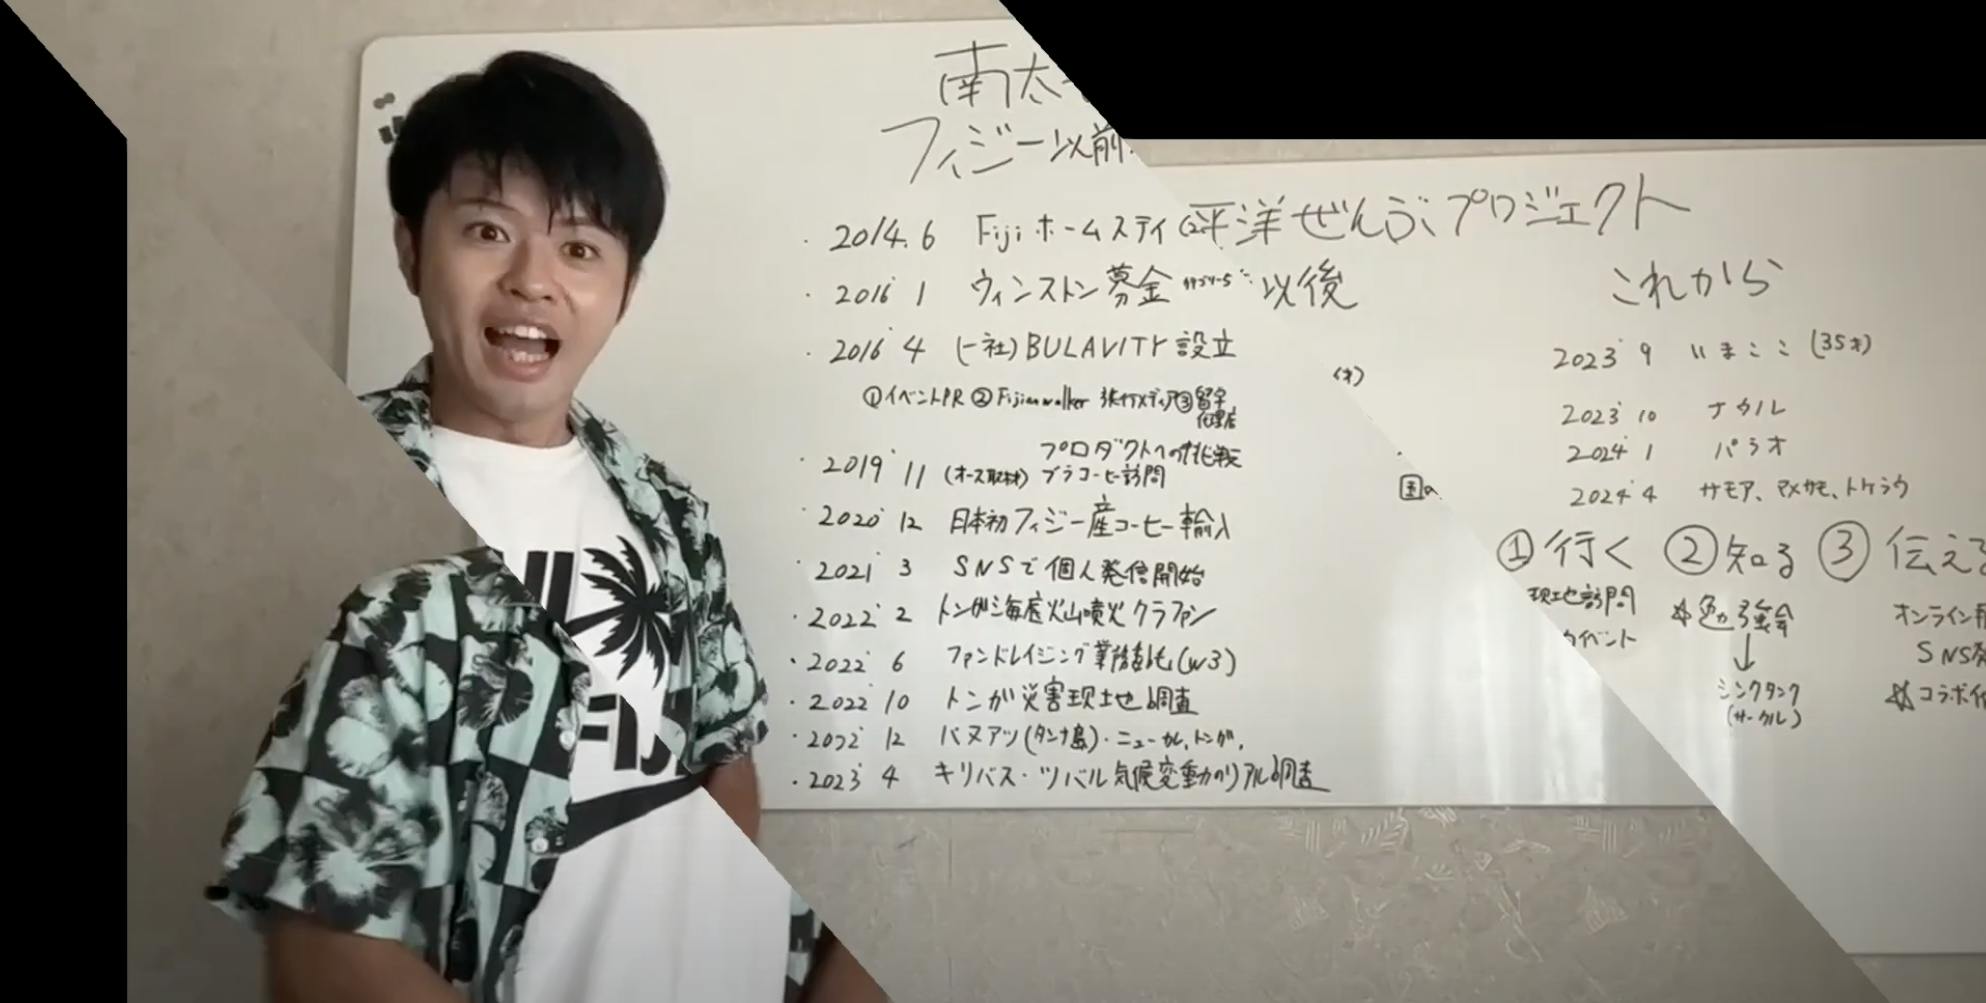 南太
フィジー以前
平洋ぜんぶプロジェクト
以後
これから
・2014.6 Fijiホームステイ
・2016 1 ウィンストン募金
・2016 4 (一社)BULAVITY設立
①イベントPR ②Fijianwalker 旅行メディア③留学
代理店
プロダクトへの挑戦
・2019 11 (オース取材) ブラコーヒー訪問
・2020 12 日本初フィジー産コーヒー輸入
・2021 3 SNSで個人発信開始
・2022 2 トンガ海底火山噴火クラファン
・2022 6 ファンドレイジング業務委託(W3)
・2022 10 トンガ災害現地調査
・2022 12 バヌアツ(タンナ島)・ニューカレ,トンガ,
・2023 4 キリバス・ツバル気候変動のリアル調査
2023 9 いまここ (35才)
2023 10 ナウル
2024 1 パラオ
2024 4 サモア、アメサモ、トケラウ
①行く ②知る ③伝える
現地訪問
イベント
勉強会
シンクタンク
(サークル)
オンライン
SNS発
☆コラボ
FIJI